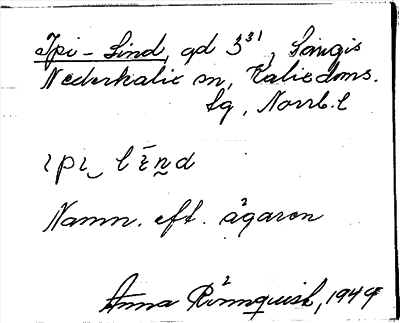 Ipi-Lind, gd 3³¹, Sangis
Nederkalix sn, Kalixdoms.
lg, Norrb. l
ɩpɩ‿ lɩ̄n̰d
Namn. eft. ägaren
Anna Rönnquist, 1949